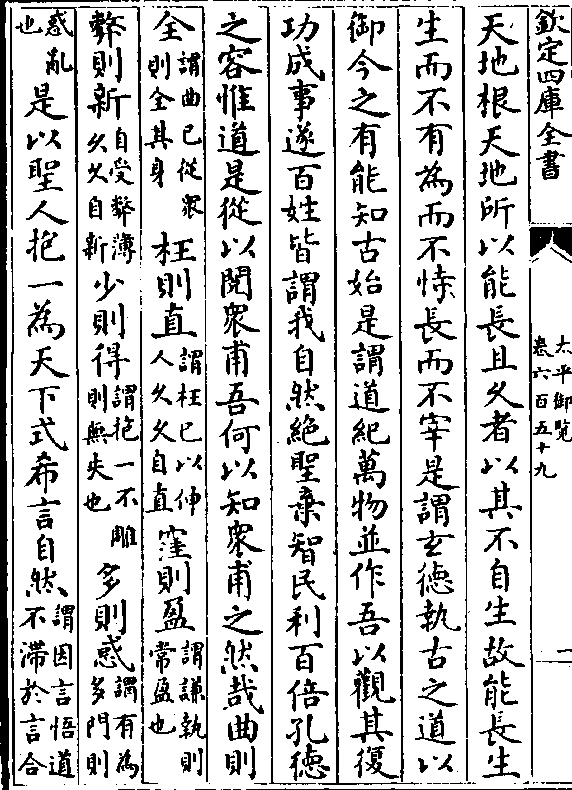 欽定四庫全書
太平御覧
卷六百五十九
一
天地根天地所以能長且久者以其不自生故能長生
生而不有為而不恃長而不宰是謂玄德執古之道以
御今之有能知古始是謂道紀萬物並作吾以觀其復
功成事遂百姓皆謂我自然絶聖棄智民利百倍孔德
之容惟道是從以閱衆甫吾何以知衆甫之然哉曲則
全謂曲已從衆則全其身枉則直謂枉已以伸人久久自直窪則盈謂謙執則常盈也
弊則新自受弊薄久久自新少則得謂抱一不離則無失也多則惑謂有為多門則
惑亂也是以聖人抱一為天下式希言自然謂因言悟道不滯於言合